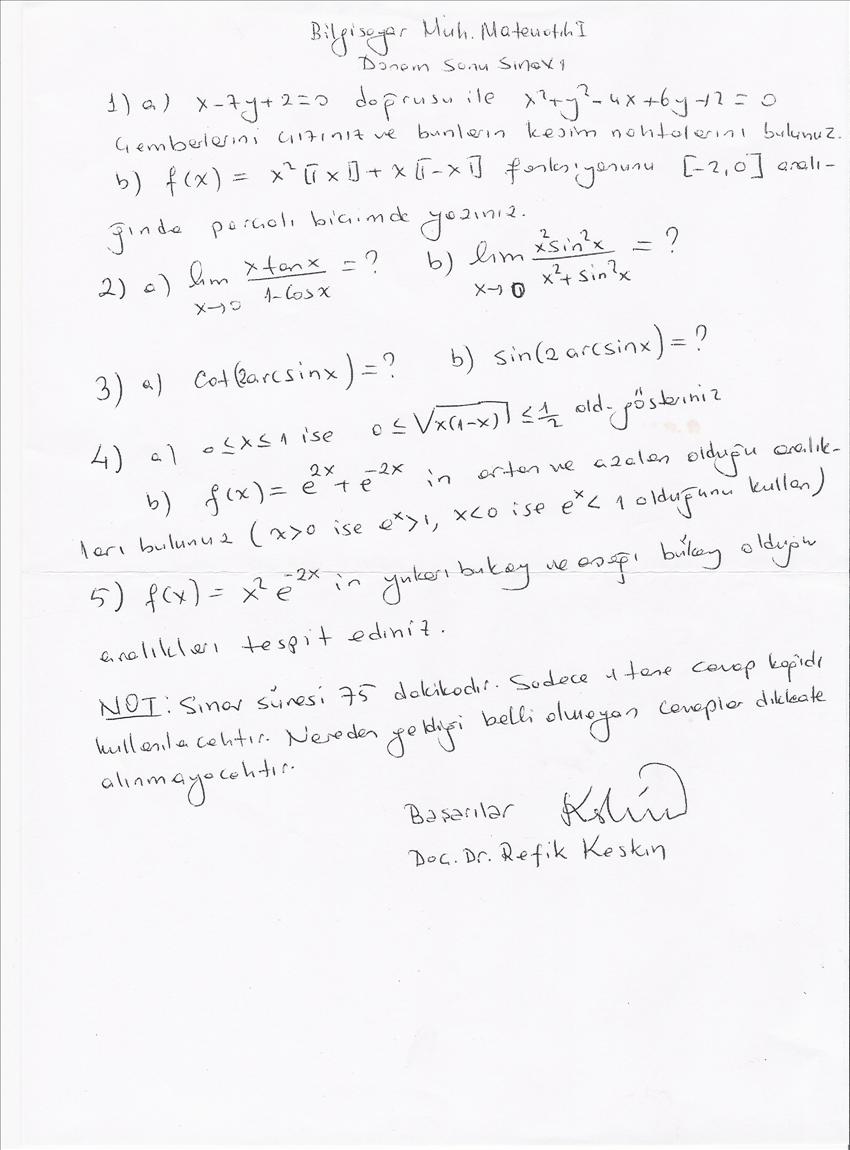 Bilgisayar Müh. Matematik I
Dönem Sonu Sınavı
1) a) x-7y+2=0 doğrusu ile x²+y²-4x+6y-12=0
Çemberlerini çiziniz ve bunların kesim noktalarını bulunuz.
b) f(x) = x²⟦x⟧ + x⟦-x⟧ fonksiyonunu [-2,0] aralı-
ğında parçalı biçimde yazınız.
2) a) lim x→0 (x tanx)/(1-Cosx) = ? b) lim x→0 (x² sin²x)/(x²+sin²x) = ?
3) a) Cot(2arcsinx)=? b) sin(2arcsinx)=?
4) a) 0≤x≤1 ise 0≤√x(1-x) ≤ 1/2 old. gösteriniz
b) f(x)= e^2x + e^-2x in artan ve azalan olduğu aralık-
ları bulunuz (x>0 ise e^x>1, x<0 ise e^x<1 olduğunu kullan)
5) f(x) = x² e^-2x in yukarı bukey ve aşağı bükey olduğu
aralıkları tespit ediniz.
NOT: Sınav süresi 75 dakikadır. Sadece 1 tane cevap kağıdı
kullanılacaktır. Nereden geldiği belli olmayan cevaplar dikkate
alınmayacaktır.
Başarılar
Doç. Dr. Refik Keskin